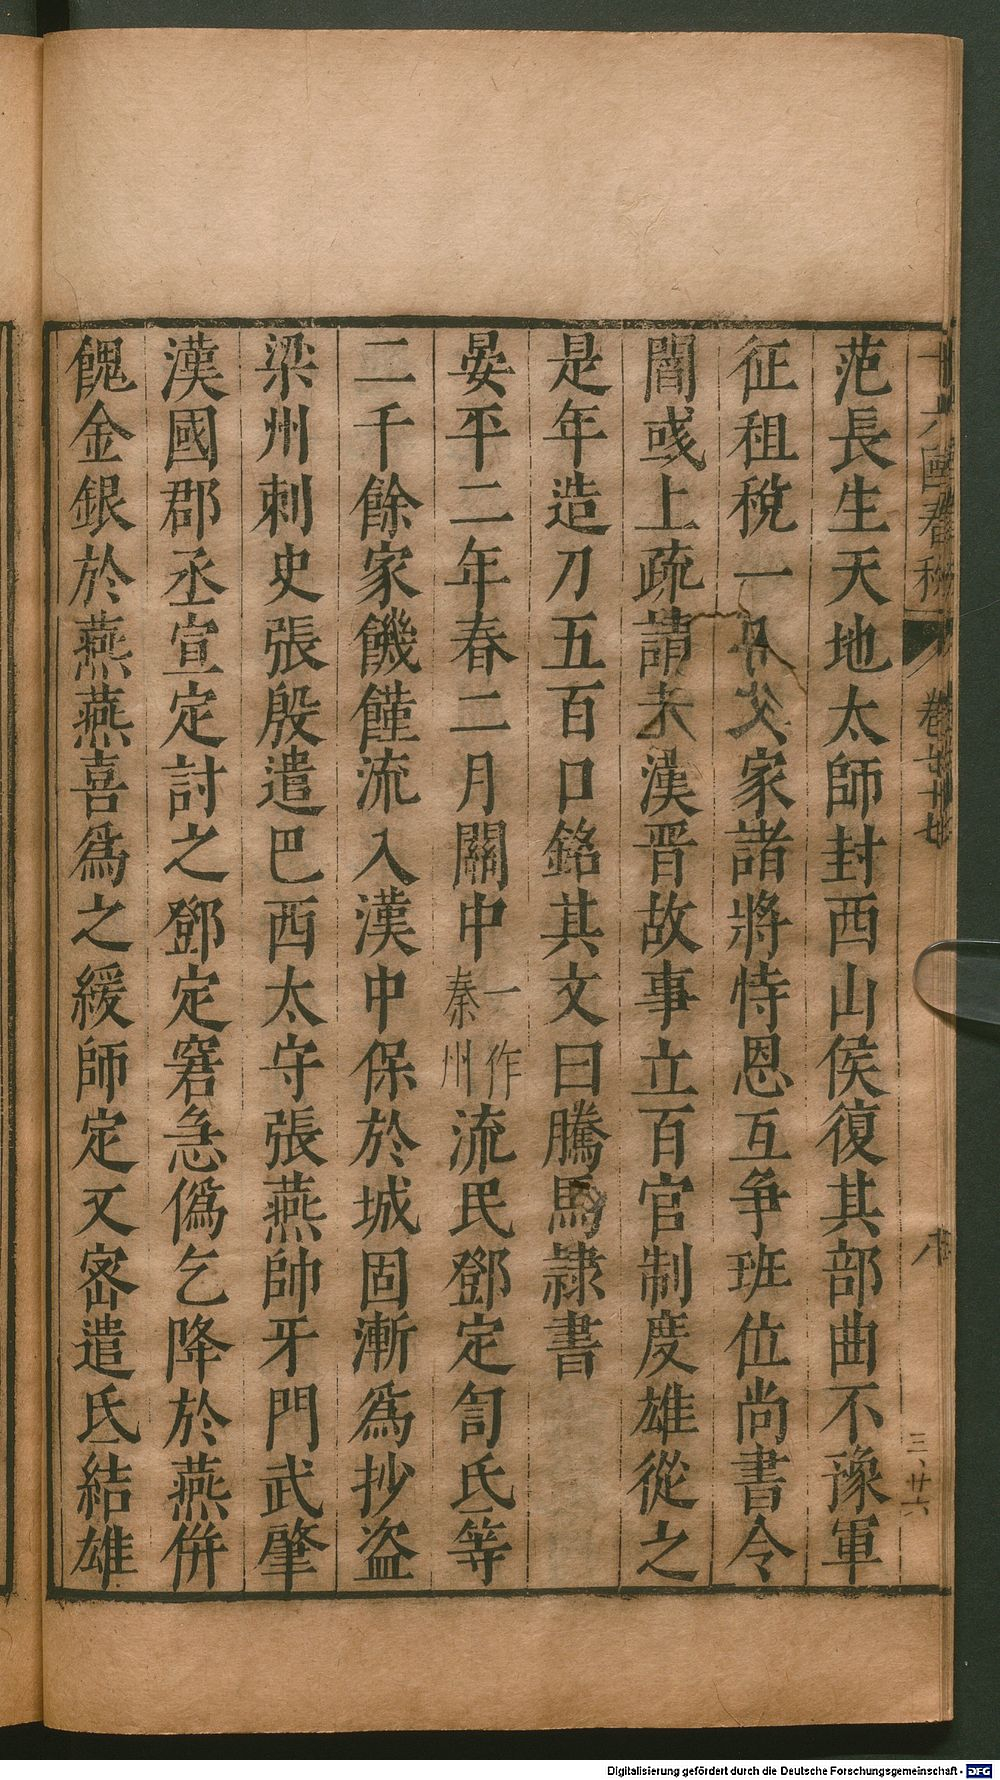 十六國春秋
卷七十七
三、廿六
范長生天地太師封西山侯復其部曲不豫軍
征租稅一入其家諸將恃恩互爭班位尚書令
閻彧上疏請夫漢晋故事立百官制度雄從之
是年造刀五百口銘其文曰騰馬隸書
晏平二年春二月關中一作秦州流民鄧定訇氐等
二千餘家饑饉流入漢中保於城固漸為抄盜
梁州刺史張殷遣巴西太守張燕帥牙門武肇
漢國郡丞宣定討之鄧定窘急僞乞降於燕併
餽金銀於燕燕喜爲之緩師定又宻遣氐結雄
Digitalisierung gefördert durch die Deutsche Forschungsgemeinschaft - DFG